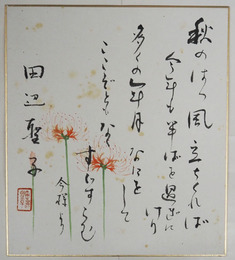 秋のはつ風立ちぬれば
今年も半ばを過ぎにけり
多くの年月なにをして
ここぞともなく
すごすらむ
今様より
田辺聖子